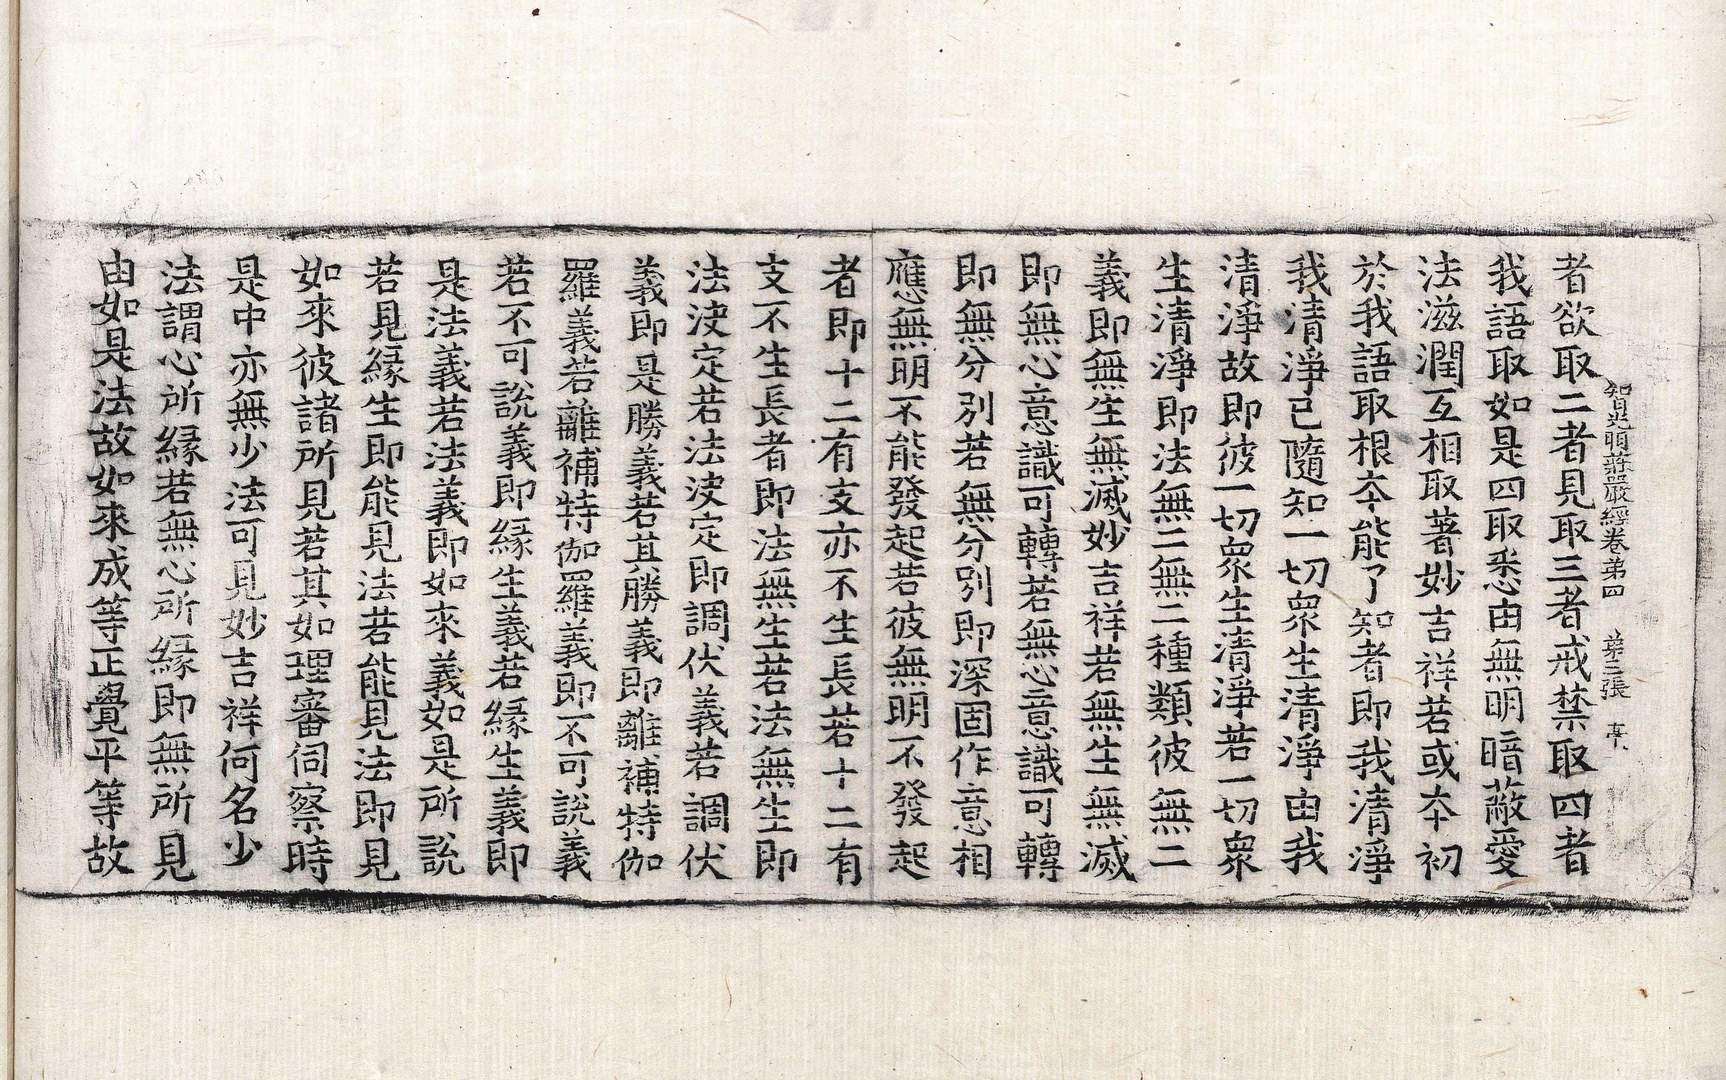 智光明莊嚴經卷第四 第三張
者欲取二者見取三者戒禁取四者
我語取如是四取悉由無明暗蔽愛
法滋潤互相取著妙吉祥若或夲初
於我語取根夲能了知者即我清淨
我清淨已隨知一切衆生清淨由我
清淨故即彼一切衆生清淨若一切衆
生清淨即法無二無二種類彼無二
義即無生無滅妙吉祥若無生無滅
即無心意識可轉若無心意識可轉
即無分別若無分別即深固作意相
應無明不能發起若彼無明不發起
者即十二有支亦不生長若十二有
支不生長者即法無生若法無生即
法決定若法決定即調伏義若調伏
義即是勝義若其勝義即離補特伽
羅義若離補特伽羅義即不可說義
若不可說義即緣生義若緣生義即
是法義若法義即如來義如是所說
若見緣生即能見法若能見法即見
如來彼諸所見若其如理審伺察時
是中亦無少法可見妙吉祥何名少
法謂心所緣若無心所緣即無所見
由如是法故如來成等正覺平等故